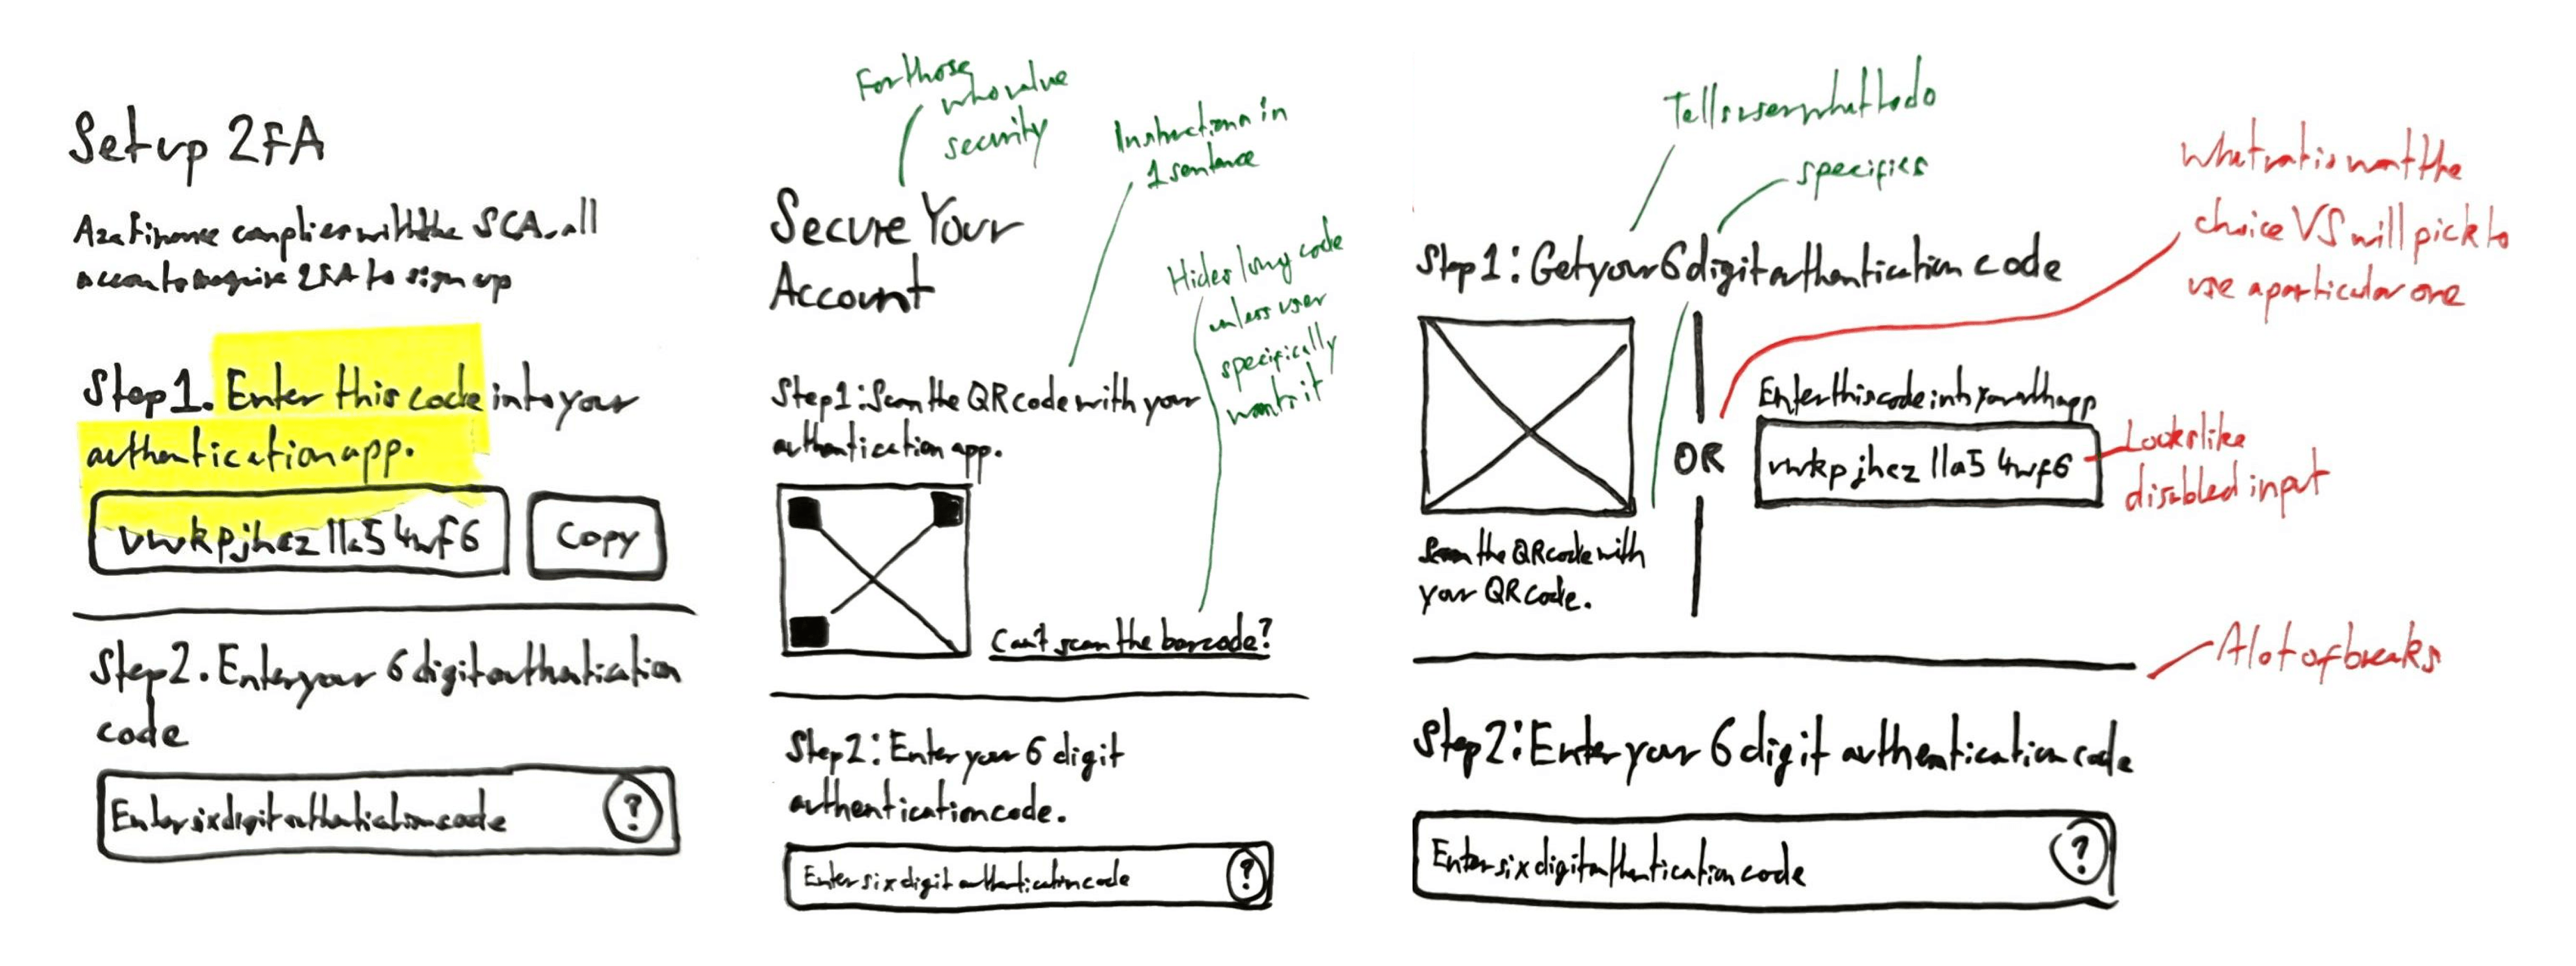 Setup 2FA
Aza Finance complies with the SCA, all
accounts require 2FA to sign up
Step 1. Enter this code into your
authentication app.
vwkpjhez lla5 4wf6
Copy
Step 2. Enter your 6 digit authentication
code
Enter six digit authentication code ?
For those
who value
security
Instructions in
1 sentence
Secure Your
Account
Hides long code
unless user
specifically
wants it
Step 1: Scan the QR code with your
authentication app.
Can't scan the barcode?
Step 2: Enter your 6 digit
authentication code.
Enter six digit authentication code ?
Tells user what to do
specifics
What is want the
choice VS will pick to
use a particular one
Step 1: Get your 6 digit authentication code
OR
Enter this code into your auth app
vwkpjhez lla5 4wf6
Looks like
disabled input
Scan the QR code with
your QR code.
A lot of breaks
Step 2: Enter your 6 digit authentication code
Enter six digit authentication code ?